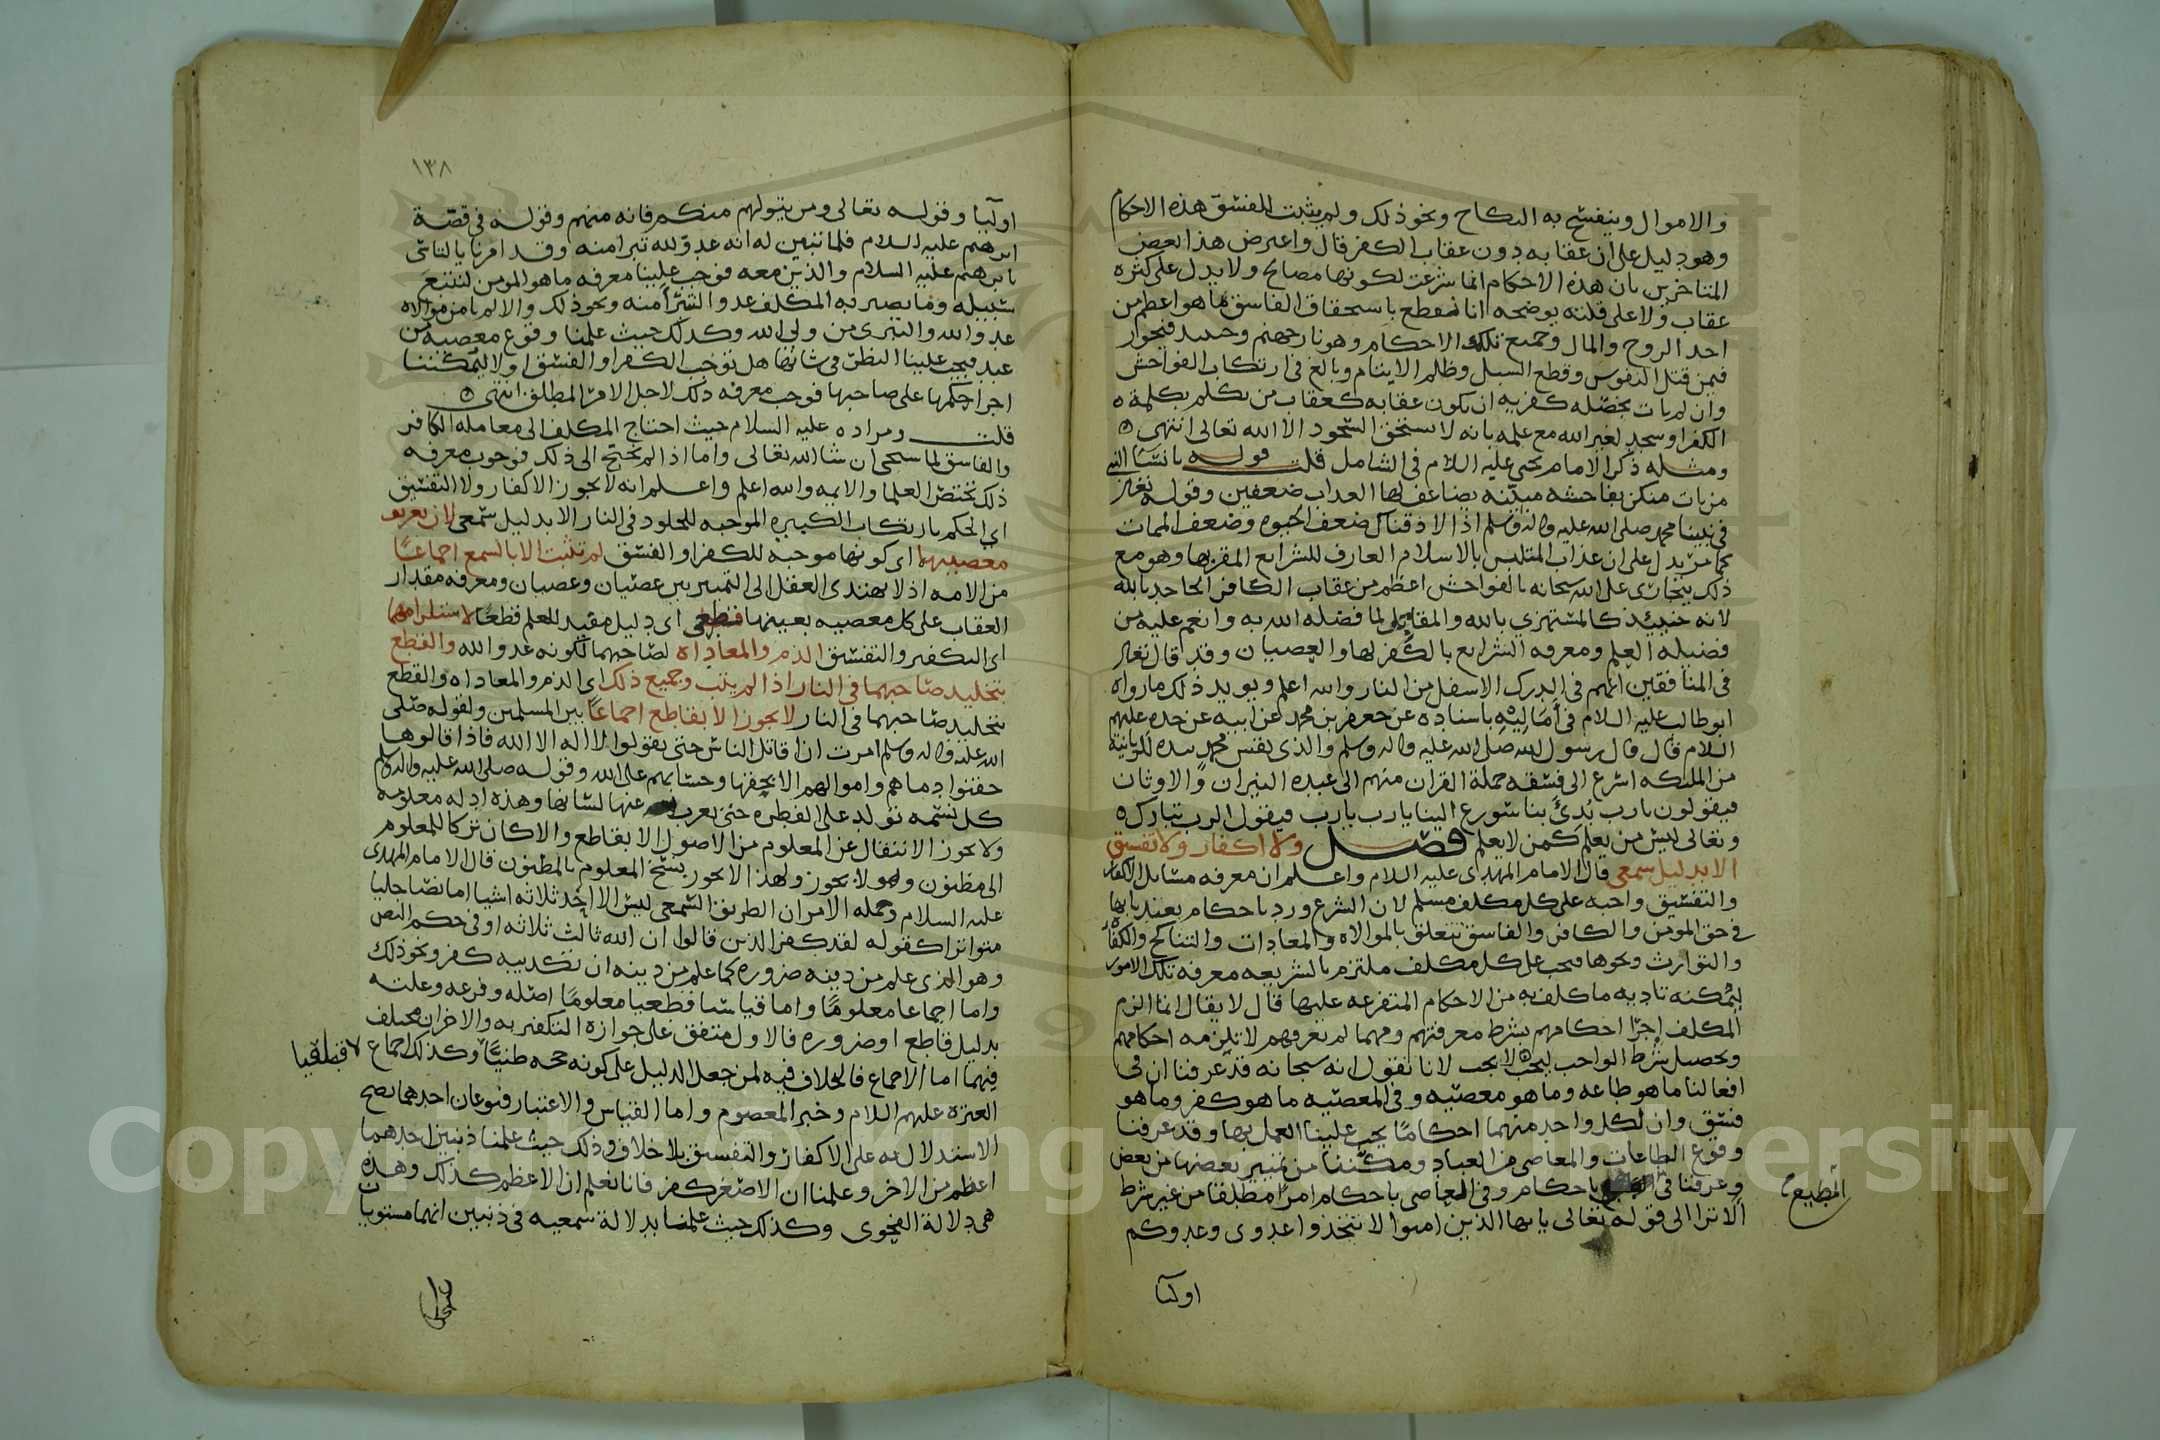 والاموال وينفسخ به النكاح ونحو ذلك ولم يثبت للفسق هذه الاحكام
وهو دليل على ان عقابه دون عقاب الكفر قال واعترض هذا بعض
المتاخرين بان هذه الاحكام انما شرعت لكونها مصالح ولا يدل على كثرة
عقاب ولا على قلته يوضحه انا نقطع باستحقاق الفاسق ما هو اعظم من
اخذ الروح والمال وجميع تلك الاحكام وهو نار جهنم وحينئذ فنجوز
فيمن قتل النفوس وقطع السبل وظلم الايتام وبالغ في ارتكاب الفواحش
وان لم يات بخصلة كفرية ان يكون عقابه كعقاب من تكلم بكلمة
الكفر او سجد لغير الله مع علمه بانه لا يستحق السجود الا الله تعالى انتهى
ومثله ذكر الامام يحيى عليه السلام في الشامل قلت قوله يا نسا النبي
من يات منكن بفاحشة مبينة يضاعف لها العذاب ضعفين وقوله تعالى
في نبينا محمد صلى الله عليه واله وسلم اذا لاذقناك ضعف الحيوة وضعف الممات
مما يدل على ان عذاب المتلبس بالاسلام العارف للشرايع المقر بها وهو مع
ذلك يتجارى على الله سبحانه بالفواحش اعظم من عقاب الكافر الجاحد بالله
لانه حينئذ كالمستهزي بالله والمقابل لما فضله الله به وانعم عليه من
فضيلة العلم ومعرفة الشرايع بالكفر لها والعصيان وقد قال تعالى
في المنافقين انهم في الدرك الاسفل من النار والله اعلم ويويد ذلك ما رواه
ابو طالب عليه السلام في اماليه باسناده عن جعفر بن محمد عن ابيه عن جده عليهم
السلام قال قال رسول الله صلى الله عليه واله وسلم والذي نفس محمد بيده للزبانية
من الملئكه اسرع الى فسقة حملة القران منهم الى عبدة النيران والاوثان
فيقولون يا رب بدئ بنا سورع الينا يا رب يا رب فيقول الرب تبارك
وتعالى ليس من يعلم كمن لا يعلم فصل ولا اكفار ولا تفسيق
الا بدليل سمعي قال الامام المهدي عليه السلام واعلم ان معرفة مسايل الاكفار
والتفسيق واجبة على كل مكلف مسلم لان الشرع ورد باحكام يعتد بها
في حق المومن والكافر والفاسق تتعلق بالموالاة والمعادات والتناكح والكفاة
والتوارث ونحوها فيجب على كل مكلف ملتزم بالشريعه معرفة تلك الامور
ليمكنه تاديه ما كلف به من الاحكام المتفرعه عليها قال لا يقال انما الزم
المكلف اجرا احكامهم بشرط معرفتهم ومهما لم نعرفهم لا تلزمه احكامهم
وتحصيل شرط الواجب ليجب لا يجب لانا نقول انه سبحانه قد عرفنا ان في
افعالنا ما هو طاعه وما هو معصيه وفي المعصيه ما هو كفر وما هو
فسق وان لكل واحد منهما احكاما يجب علينا العمل بها وقد عرفنا
وقوع الطاعات والمعاصي من العباد ومكننا من تمييز بعضها من بعض
وعرفنا في المطيع باحكام وفي العاصي باحكام امرا مطلقا من غير شرط
الا ترا الى قوله تعالى يايها الذين امنوا لا تتخذوا عدوي وعدوكم
اوليا
١٣٨
اوليا وقوله تعالى ومن يتولهم منكم فانه منهم وقوله في قصة
ابرهيم عليه السلام فلما تبين له انه عدو لله تبرا منه وقد امرنا بالتاسي
بابرهيم عليه السلام والذين معه فوجب علينا معرفة ما هو المومن لنتبع
سبيله وما يصير به المكلف عدو لنتبرأ منه ونحو ذلك والا لم نامن موالاة
عدو الله والتبري من ولي الله وكذلك حيث علمنا وقوع معصية من
عبد فيجب علينا النظر في شانها هل توجب الكفر او الفسق او لا ليمكننا
اجرا حكمها على صاحبها فوجب معرفة ذلك لاجل الامر المطلق انتهى
قلت ومراده عليه السلام حيث احتاج المكلف الى معاملة الكافر
والفاسق لما سيجي ان شا الله تعالى واما اذا لم يحتج الى ذلك فوجوب معرفة
ذلك تختص العلما والايمه والله اعلم واعلم انه لا يجوز الاكفار ولا التفسيق
اي الحكم بارتكاب الكبيره الموجبه للخلود في النار الا بدليل سمعي لان تعريف
معصيتهما اي كونها موجبه للكفر او الفسق لم تثبت الا بالسمع اجماعا
من الامه اذ لا يهتدي العقل الى التمييز بين عصيان وعصيان ومعرفة مقدار
العقاب على كل معصيه بعينها قطعي اي دليل مفيد للعلم قطعا لاستلزامهما
اي التكفير والتفسيق الذم والمعاداه لصاحبهما لكونه عدو الله والقطع
بتخليد صاحبهما في النار اذا لم يتب وجميع ذلك اي الذم والمعاداه والقطع
بتخليد صاحبهما في النار لا يجوز الا بقاطع اجماعا بين المسلمين ولقوله صلى
الله عليه واله وسلم امرت ان اقاتل الناس حتى يقولوا لا اله الا الله فاذا قالوها
حقنوا دماهم واموالهم الا بحقها وحسابهم على الله وقوله صلى الله عليه واله وسلم
كل نسمه تولد على الفطره حتى يعرب عنها لسانها وهذه ادله معلومه
ولا يجوز الانتقال عن المعلوم من الاصول الا بقاطع والا كان تركا للمعلوم
الى مظنون وهو لا يجوز ولهذا لا يجوز نسخ المعلوم بالمظنون قال الامام المهدي
عليه السلام وجمله الامر ان الطريق السمعي ليس الا احد ثلاثه اشيا اما نصا جليا
متواترا كقوله لقد كفر الذين قالوا ان الله ثالث ثلاثه او في حكم النص
وهو الذي علم من دينه ضرورة كما علم من دينه ان تكذيبه كفر ونحو ذلك
واما اجماعا معلوما واما قياسا قطعيا معلوما اصله وفرعه وعلته
بدليل قاطع او ضروره فالاول متفق على جوازه التكفير به والاخران مختلف
فيهما اما الاجماع فالخلاف فيه لمن جعل الدليل على كونه حجه ظنيا وكذلك اجماع لا قطعيا
العترة عليهم السلام وخبر المعصوم واما القياس والاعتبار فنوعان احدهما يصح
الاستدلال به على الاكفار والتفسيق بلا خلاف وذلك حيث علمنا ذنبين احدهما
اعظم من الاخر وعلمنا ان الاصغر كفر فانا نعلم ان الاعظم كذلك وهذه
هي دلالة الفحوى وكذلك حيث علمنا بدلالة سمعيه في ذنبين انهما مستويان
المطيع